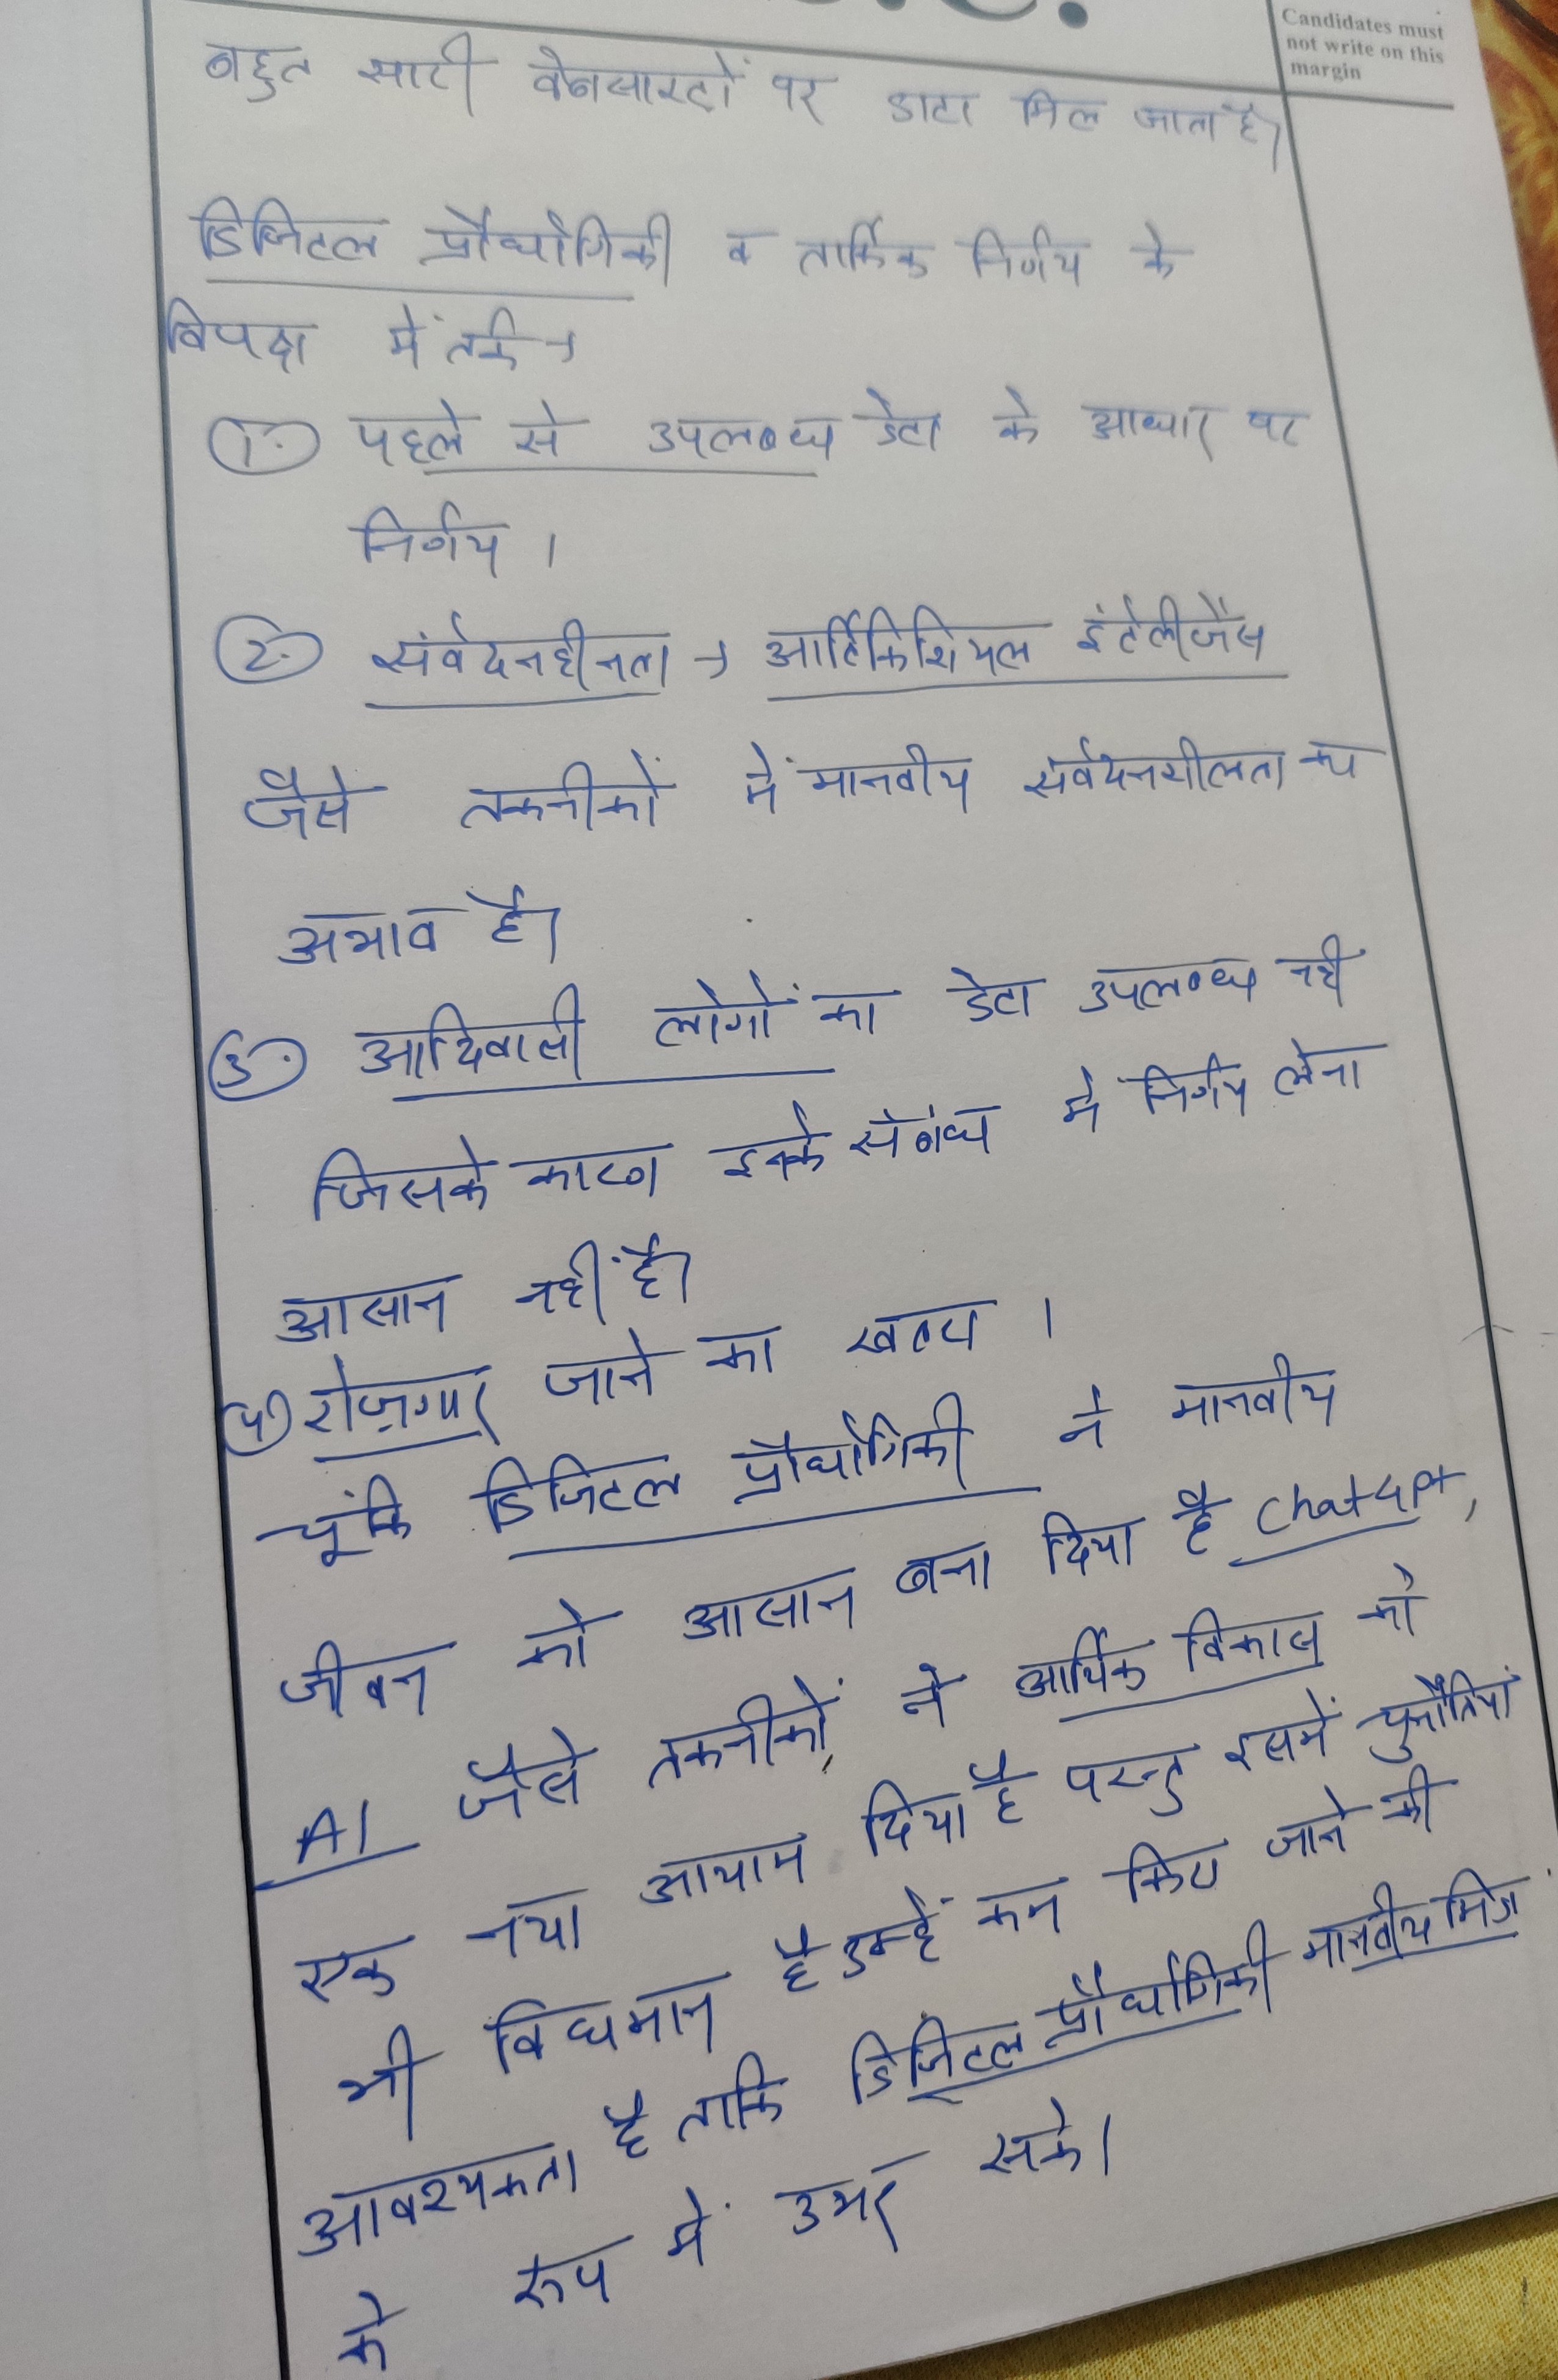 Candidates must
not write on this
margin
बहुत सारी वेबसाइटों पर डाटा मिल जाता है।
डिजिटल प्रौद्योगिकी व तार्किक निर्णय के
विपक्ष में तर्क →
1. पहले से उपलब्ध डेटा के आधार पर
निर्णय ।
2. संवेदनहीनता → आर्टिफिशियल इंटेलीजेंस
जैसे तकनीकों में मानवीय संवेदनशीलता का
अभाव है।
3. आदिवासी लोगों का डेटा उपलब्ध नही
जिसके कारण इनके संबंध में निर्णय लेना
आसान नहीं है।
4 रोज़गार जाने का खतरा ।
चूंकि डिजिटल प्रौद्योगिकी ने मानवीय
जीवन को आसान बना दिया है Chatgpt,
AI जैसे तकनीकों, ने आर्थिक विकास को
एक नया आयाम दिया है परन्तु इसमें चुनौतियां
भी विद्यमान है उन्हें कम किए जाने की
आवश्यकता है ताकि डिजिटल प्रौद्योगिकी मानवीय मित्र
के रूप में उभर सके।